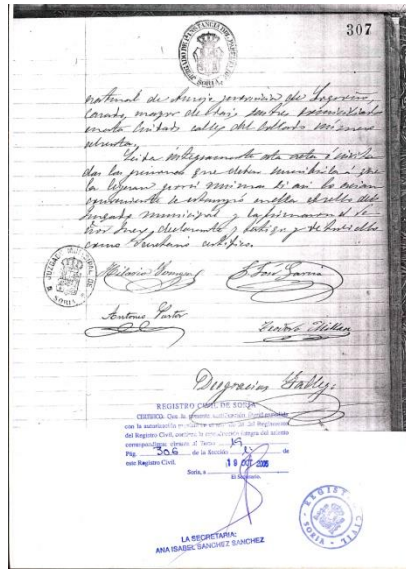 307
JUZGADO DE 1ª INSTANCIA DEL PARTIDO DE
SORIA
natural de provincia de Logroño,
casado, mayor de edad, sastre domiciliado
en esta Ciudad calle del Collado número
ochenta.
Leida integramente esta acta é invita
das las personas que deben suscribirla á que
la leyeran por si mismas si asi lo creian
conveniente se estampó en ella el sello del
Juzgado municipal y la firmaron el Se
ñor Juez, declarante y testigos y de todo ello
como Secretario certifico.
JUZGADO MUNICIPAL DE
SORIA
Hilario
García
Antonio Pastor
Millán
Deogracias
REGISTRO CIVIL DE SORIA
CERTIFICO: Que la presente certificación literal expedida
con la autorización del Reglamento
del Registro Civil, contiene la reproducción íntegra del asiento
correspondiente obrante al Tomo 19
Pág. 306 de la Sección de
este Registro Civil.
Soria, a 19 OCT 2006
El Secretario,
LA SECRETARIA:
ANA ISABEL SANCHEZ SANCHEZ
REGISTRO CIVIL
SORIA